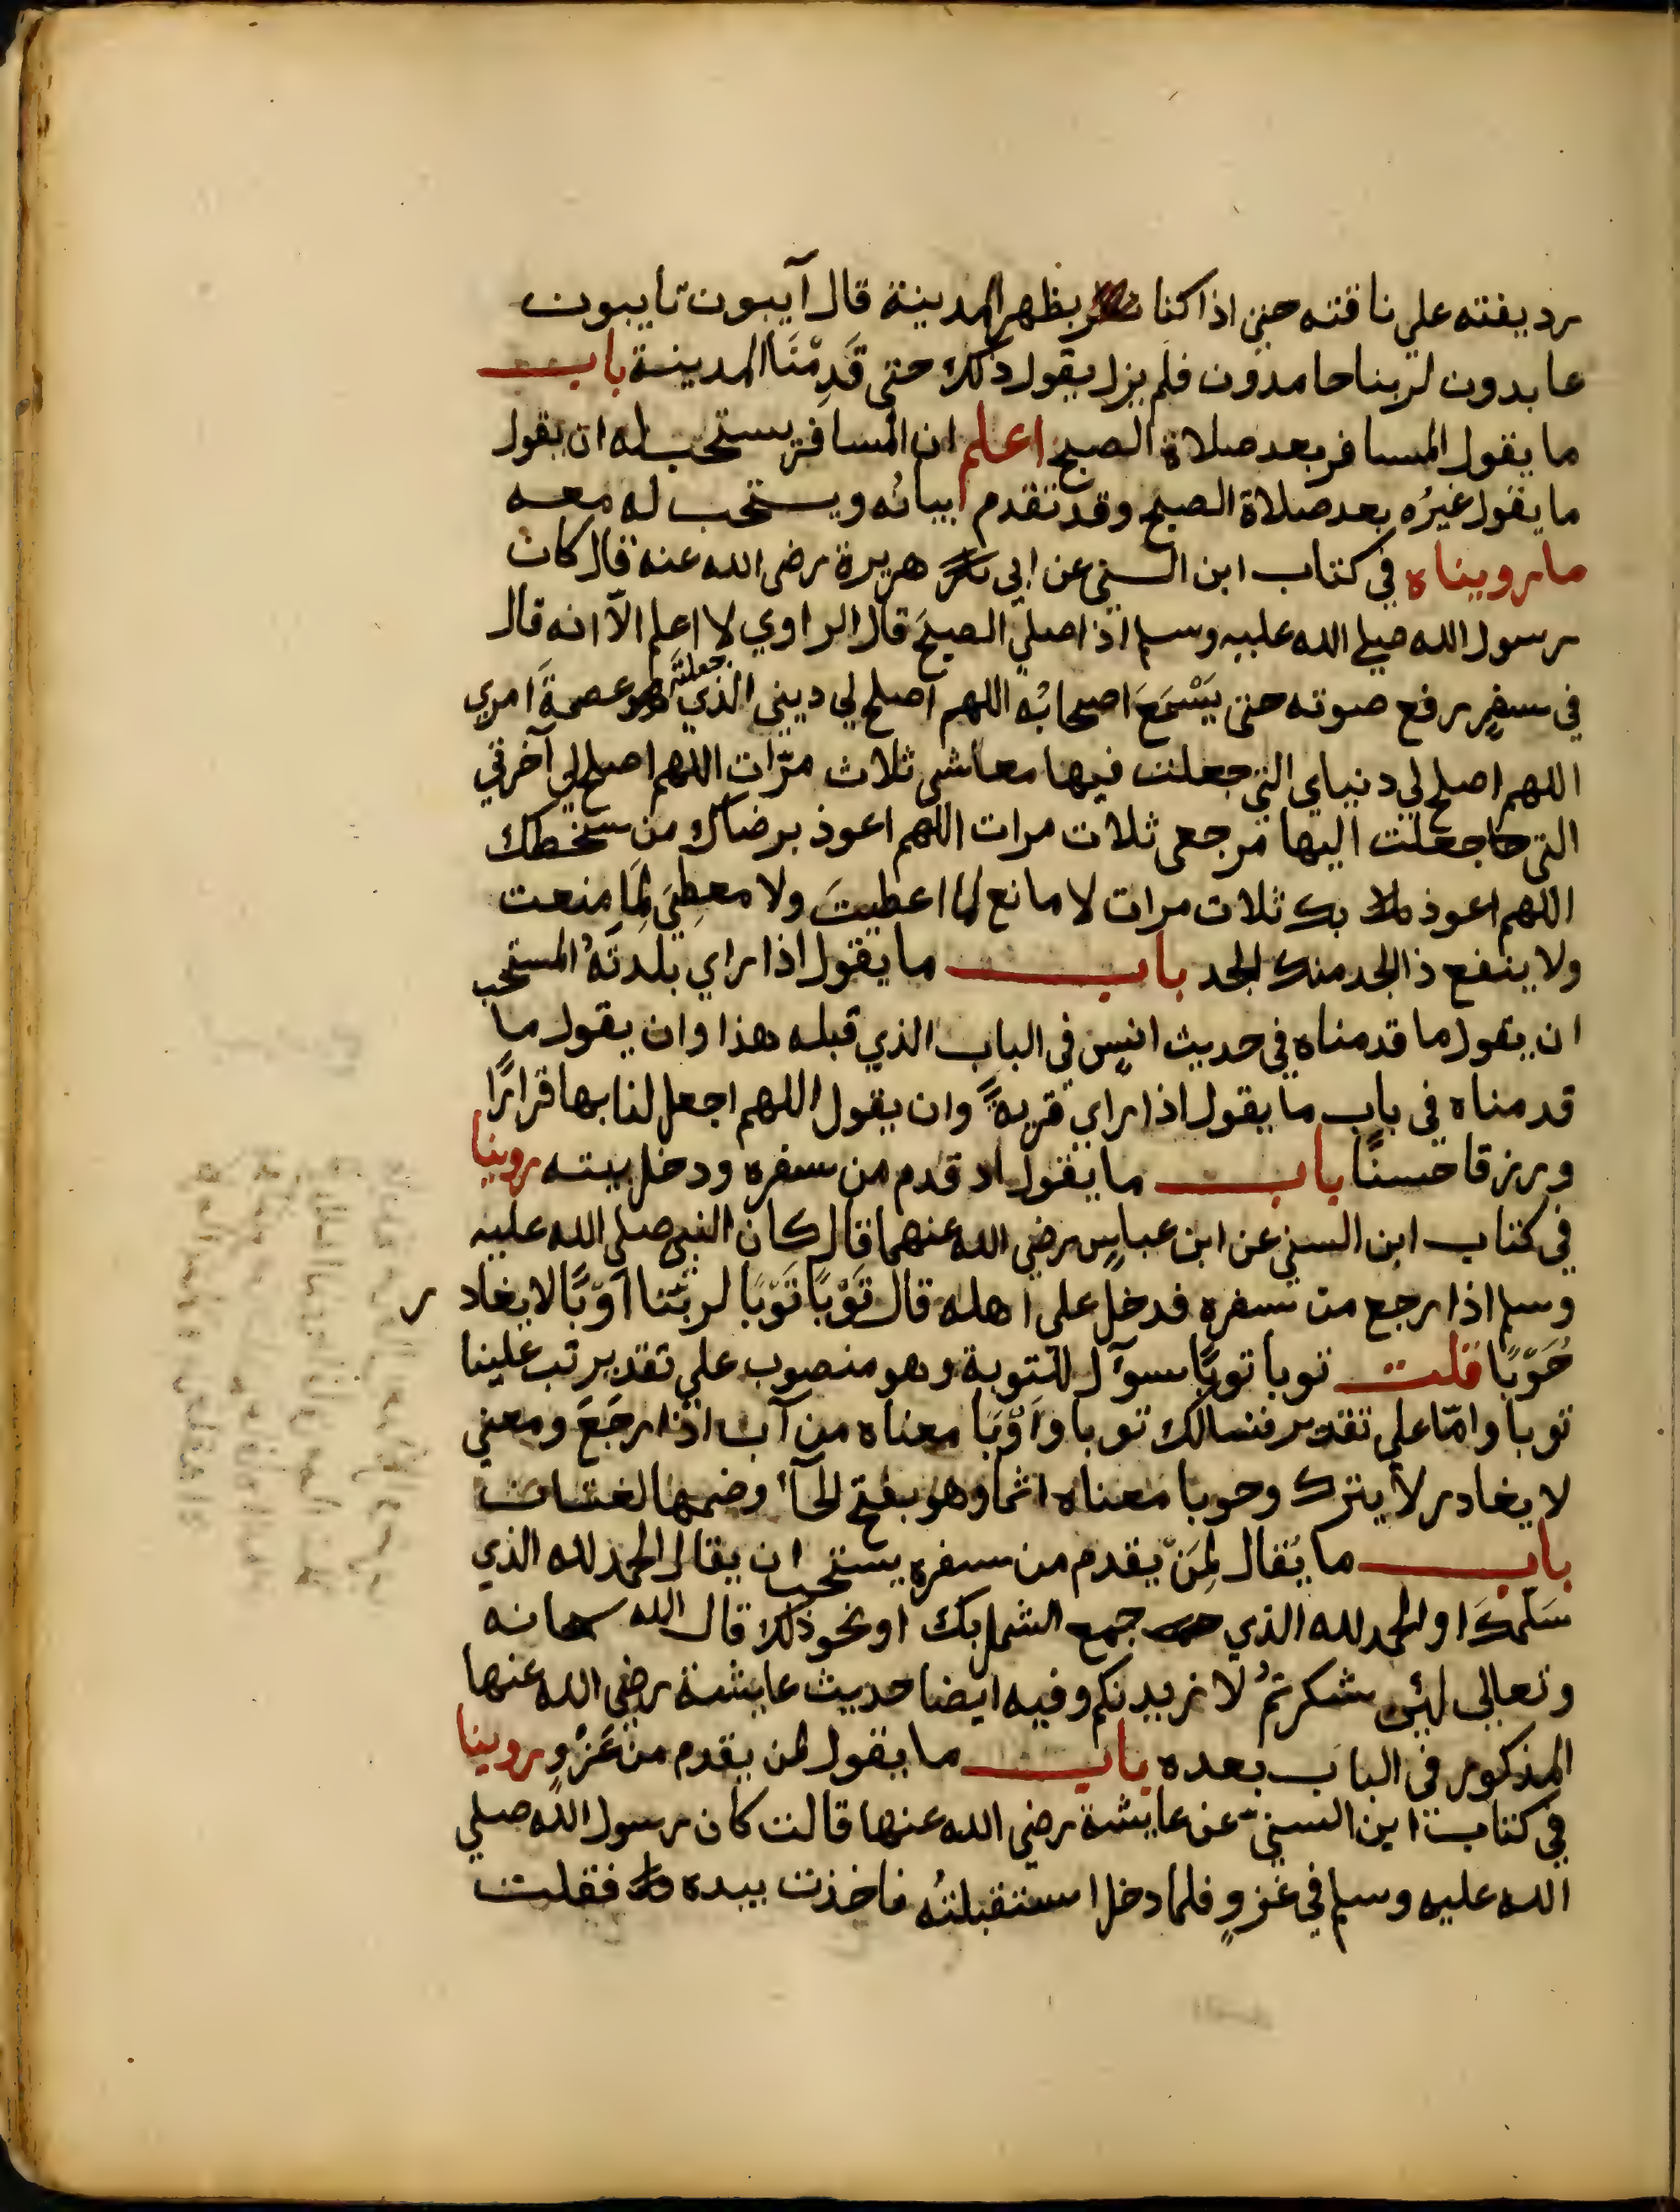 رديفته علي ناقته حتي اذا كنا بظهر المدينة قال آيبون تايبون
عابدون لربنا حامدون فلم يزل يقول ذلك حتي قَدِمْنَا المدينة باب
ما يقول المسافر بعد صلاة الصبح اعلم ان المسافر يستحب له ان يقول
ما يقول غيرُه بعد صلاة الصبح وقد تقدم بيانُه ويستحب له معه
ما رويناه في كتاب ابن السني عن ابي هريرة رضي الله عنه قال كان
رسول الله صلي الله عليه وسلم اذا صلي الصبحَ قال الراوي لا اعلم الّا انه قال
في سفرٍ رفع صوته حتى يَسْمَعَ اصحابُه اللهم اصلح لي ديني الذي جعلتَه عصمةَ امري
اللهم اصلح لي دنياي التي جعلت فيها معاشي ثلاث مرّات اللهم اصلح لي آخرتي
التي جعلت اليها مرجعي ثلاث مرات اللهم اعوذ برضاك من سخطك
اللهم اعوذ بك ثلاث مرات لا مانع لما اعطيتَ ولا معطِيَ لِمَا منعت
ولا ينفع ذا الجد منك الجد باب ما يقول اذا راي بلدتَهُ المستحب
ان يقول ما قدمناه في حديث انسٍ في الباب الذي قبله هذا وان يقول ما
قدمناه في باب ما يقول اذا راي قريةً وان يقول اللهم اجعل لنا بها قرارًا
ورزقا حسنًا باب ما يقول اذ قدم من سفره ودخل بيته روينا
في كتاب ابن السني عن ابن عباسٍ رضي الله عنهما قال كان النبي صلي الله عليه
وسلم اذا رجع من سفره فدخل علي اهله قال تَوْبًا تَوْبًا لربّنا أوْبًا لا يغادر
حُوْبًا قلت توبا توبًا سوآل للتوبة وهو منصوب علي تقدير تب علينا
توبا وامّا علي تقدير نسالك توبا وَأَوْبًا معناه من آب اذا رجَعَ ومعني
لا يغادر لا يترك وحوبا معناه اثما وهو بفتح الحآء وضمها لغتان
باب ما يُقال لِمَنْ يقدم من سفره يستحب ان يقال الحمد لله الذي
سَلّمكَ او الحمد لله الذي جمع الشمل بك او نحو ذلك قال الله سبحانه
وتعالي لئن شكرتمُ لازيدنكم وفيه ايضا حديث عايشة رضي الله عنها
المذكور في الباب بعده باب ما يقول لمن يقدم من غَزْوٍ روينا
في كتاب ابن السنيّ عن عايشة رضي الله عنها قالت كان رسول الله صلي
الله عليه وسلم في غزوٍ فلما دخل استقبلتُه فاخذت بيده فقلت